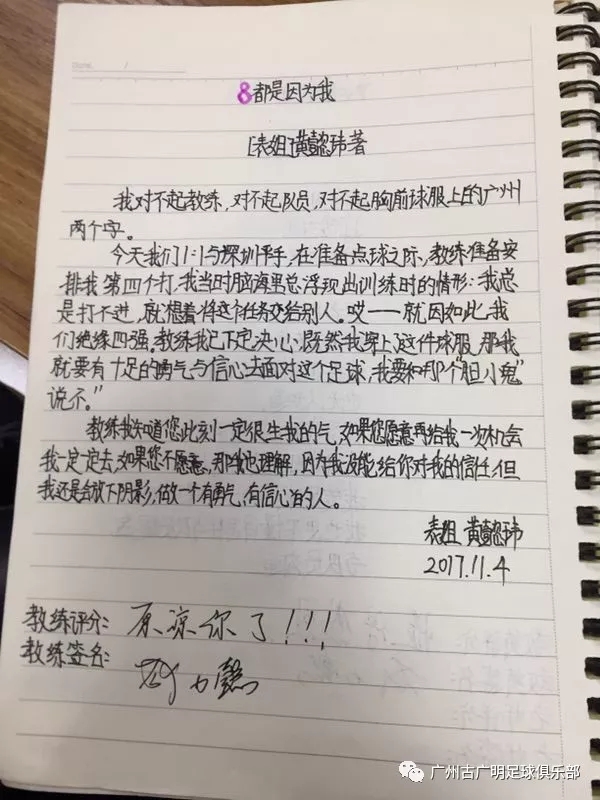 8都是因为我
[表姐]黄懿玮著
我对不起教练,对不起队员,对不起胸前球服上的广州
两个字。
今天我们1:1与深圳平手,在准备点球之际,教练准备安
排我第四个打,我当时脑海里总浮现出训练时的情形:我总
是打不进,就想着将这个任务交给别人。哎——就因如此,我
们绝缘四强。教练我已下定决心:既然我穿上了这件球服,那我
就要有十足的勇气与信心去面对这个足球,我要和那个“胆小鬼”
说不。”
教练我知道您此刻一定很生我的气,如果您愿意再给我一次机会
我一定一定去,如果您不愿意,那我也理解,因为我没能给你对我的信任,但
我还是会放下阴影,做一个有勇气,有信心的人。
表姐 黄懿玮
2017.11.4
教练评分: 原谅你了!!!
教练签名:
广州古广明足球俱乐部